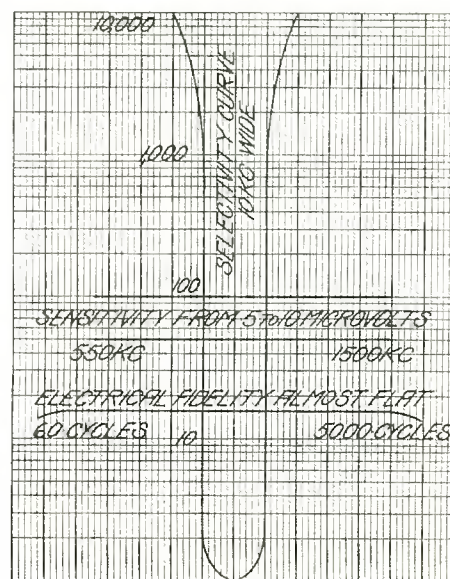 10,000
SELECTIVITY CURVE
10 KC WIDE
1,000
100
SENSITIVITY FROM 5 TO 10 MICROVOLTS
550 KC 1500 KC
ELECTRICAL FIDELITY ALMOST FLAT
60 CYCLES 10 5000 CYCLES